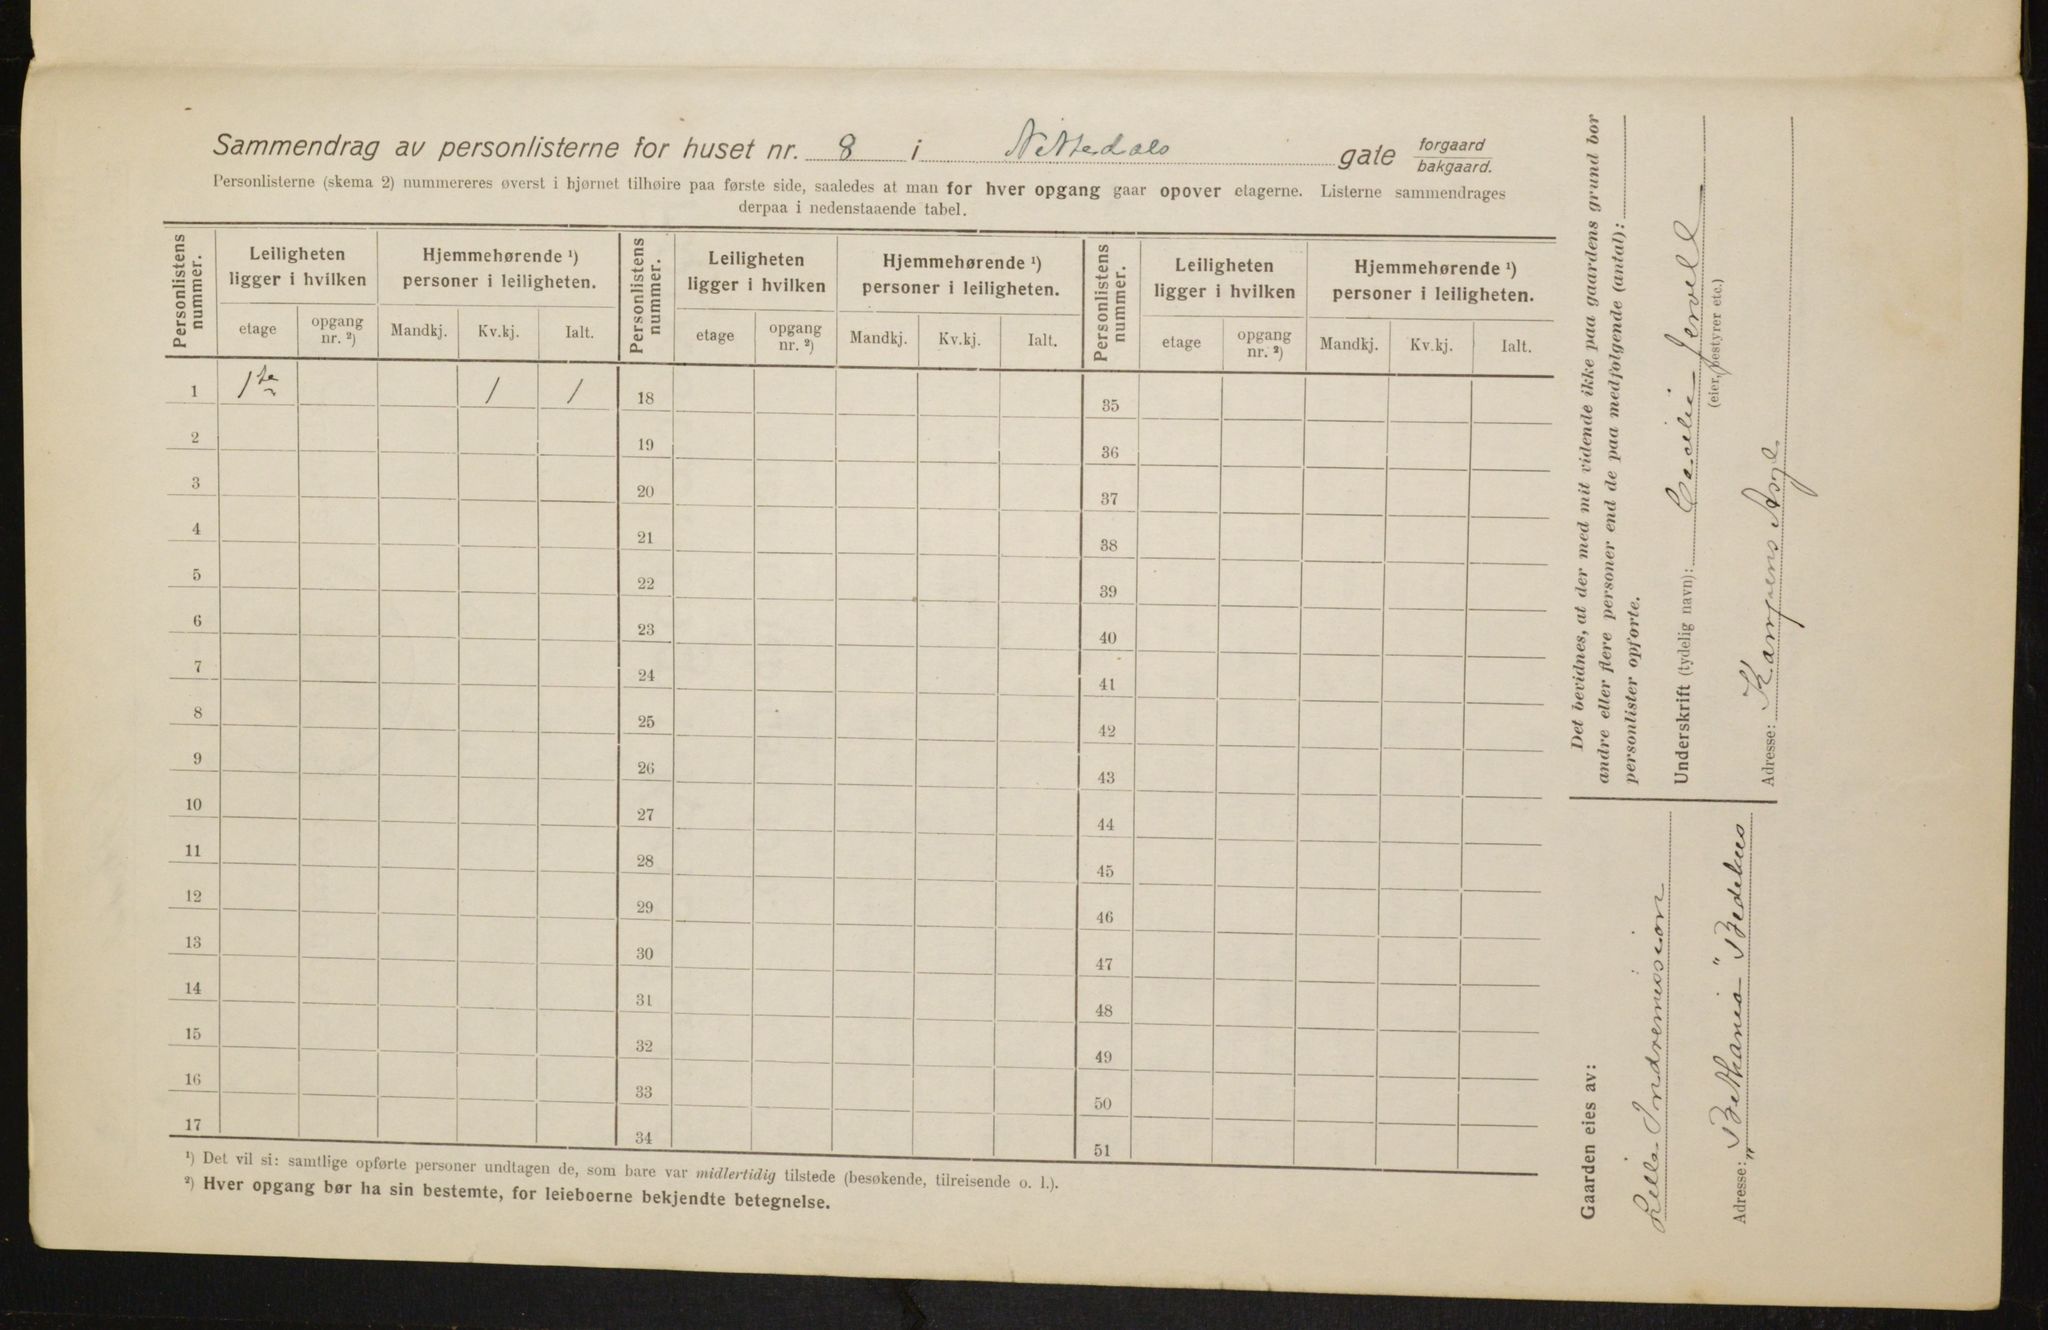 Sammendrag av personlisterne for huset nr. 8 i Nittedals gate forgaard bakgaard.
Personlisterne (skema 2) nummereres øverst i hjørnet tilhøire paa første side, saaledes at man for hver opgang gaar opover etagerne. Listerne sammendrages
derpaa i nedenstaaende tabel.
Personlistens nummer. Leiligheten ligger i hvilken Hjemmehørende ¹) personer i leiligheten. Personlistens nummer. Leiligheten ligger i hvilken Hjemmehørende ¹) personer i leiligheten. Personlistens nummer. Leiligheten ligger i hvilken Hjemmehørende ¹) personer i leiligheten.
etage opgang nr. ²) Mandkj. Kv.kj. Ialt. etage opgang nr. ²) Mandkj. Kv.kj. Ialt. etage opgang nr. ²) Mandkj. Kv.kj. Ialt.
1 1ste 1 1 18 35
2 19 36
3 20 37
4 21 38
5 22 39
6 23 40
7 24 41
8 25 42
9 26 43
10 27 44
11 28 45
12 29 46
13 30 47
14 31 48
15 32 49
16 33 50
17 34 51
¹) Det vil si: samtlige opførte personer undtagen de, som bare var midlertidig tilstede (besøkende, tilreisende o. l.).
²) Hver opgang bør ha sin bestemte, for leieboerne bekjendte betegnelse.
Det bevidnes, at der med mit vidende ikke paa gaardens grund bor
andre eller flere personer end de paa medfølgende (antal):
personlister opførte.
Underskrift (tydelig navn): Cecilie Jervell
(eier, bestyrer etc.)
Adresse: Kampens Asyl
Gaarden eies av:
Lilla Indremission
Adresse: "Bethania" Bedehus